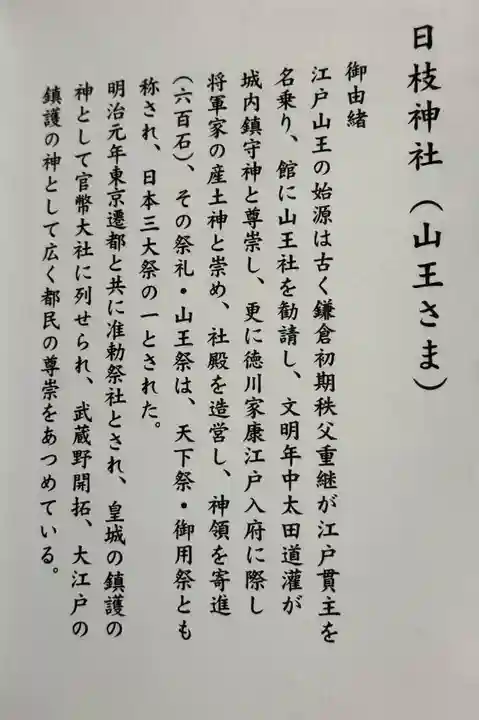 日枝神社（山王さま）
御由緒
江戸山王の始源は古く鎌倉初期秩父重継が江戸貫主を
名乗り、館に山王社を勧請し、文明年中太田道灌が
城内鎮守神と尊崇し、更に徳川家康江戸入府に際し
将軍家の産土神と崇め、社殿を造営し、神領を寄進
（六百石）、その祭礼・山王祭は、天下祭・御用祭とも
称され、日本三大祭の一とされた。
明治元年東京遷都と共に准勅祭社とされ、皇城の鎮護の
神として官幣大社に列せられ、武蔵野開拓、大江戸の
鎮護の神として広く都民の尊崇をあつめている。